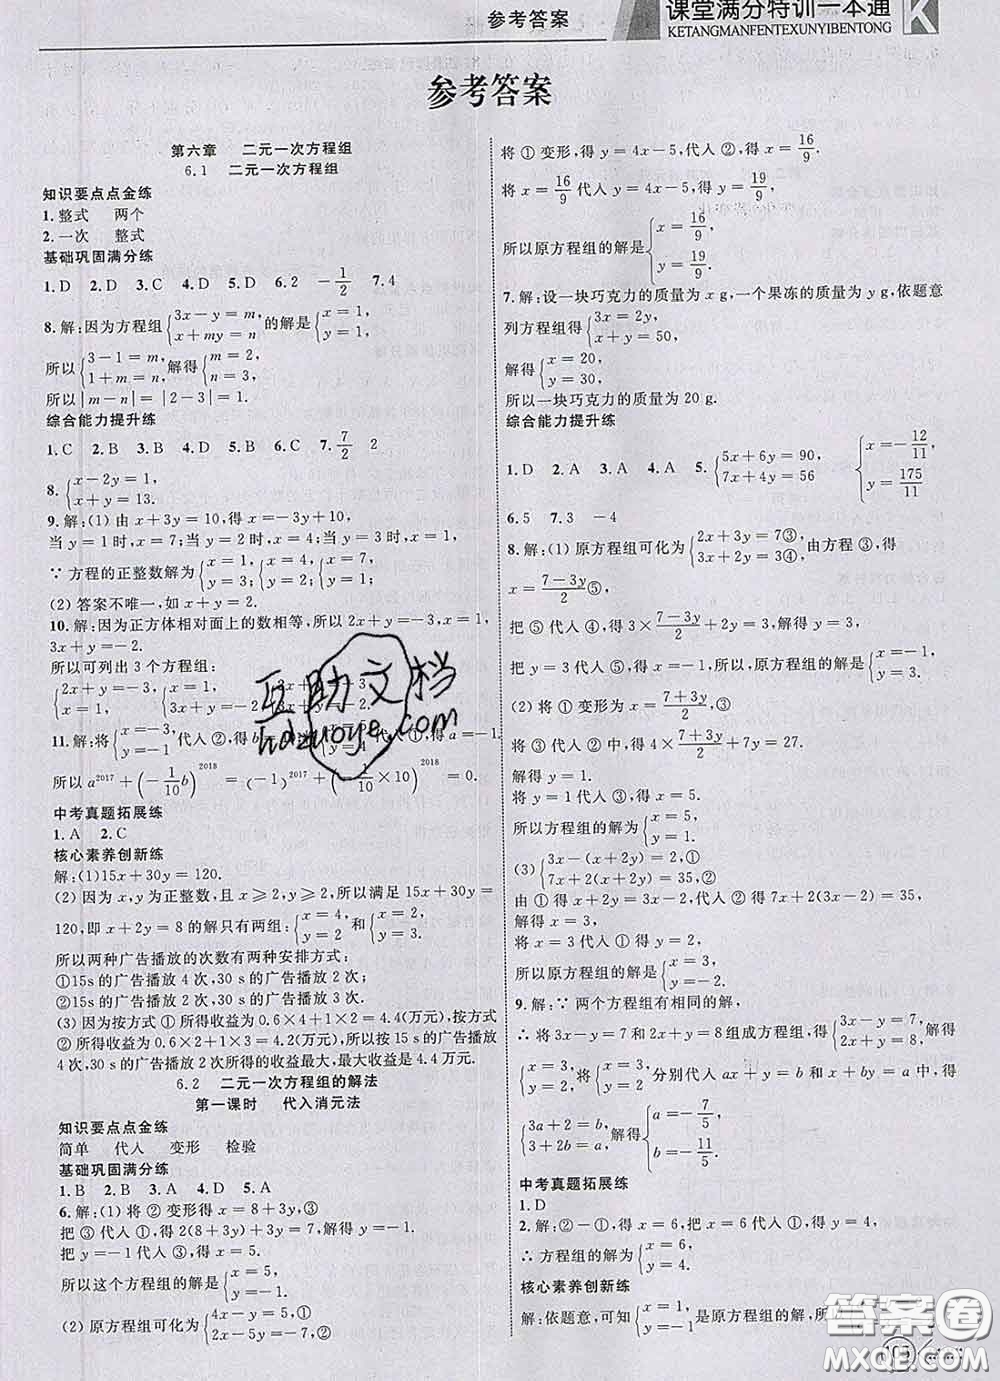 参考答案
课堂满分特训一本通
KETANGMANFENTEXUNYIBENTONG
K
参考答案
第六章 二元一次方程组
6.1 二元一次方程组
知识要点点金练
1.整式 两个
2.一次 整式
基础巩固满分练
1.D 2.D 3.C 4.D 5.D 6.2 -1/2 7.4
8.解:因为方程组{3x-y=m, x+my=n}的解是{x=1, y=1,
所以{3-1=m, 1+m=n,解得{m=2, n=3,
所以|m-n|=|2-3|=1.
综合能力提升练
1.C 2.B 3.B 4.D 5.B 6.C 7.7/2 2
8.{x-2y=1, x+y=13.
9.解:(1)由x+3y=10,得x=-3y+10,
当y=1时,x=7;当y=2时,x=4;当y=3时,x=1.
∵方程的正整数解为{x=1, y=3, {x=4, y=2, {x=7, y=1.
(2)答案不唯一,如x+y=2.
10.解:因为正方体相对面上的数相等,所以2x+y=-3,x=-1,
3x+y=-2.
所以可列出3个方程组:
11.解:将{x=-3, y=-1代人②,得b=
代人①,得a=-1.
所以a^2017+(-1/10 b)^2018=(-1)^2017+(-1/10×10)^2018=0.
中考真题拓展练
1.A 2.C
核心素养创新练
解:(1)15x+30y=120.
(2)因为x,y为正整数,且x≥2,y≥2,所以满足15x+30y=
120,即x+2y=8的解只有两组:{x=4, y=2和{x=2, y=3.
所以两种广告播放的次数有两种安排方式:
①15s的广告播放4次,30s的广告播放2次;
②15s的广告播放2次,30s的广告播放3次.
(3)因为按方式①所得收益为0.6×4+1×2=4.4(万元),按方式
②所得收益为0.6×2+1×3=4.2(万元),所以按照15s的广告播放
4次,30s的广告播放2次所得的收益最大,最大收益是4.4万元.
6.2 二元一次方程组的解法
第一课时 代入消元法
知识要点点金练
简单 代人 变形 检验
基础巩固满分练
1.B 2.B 3.A 4.D 5.A
6.解:(1)将②变形得x=8+3y,③
把③代人①,得2(8+3y)+3y=7,解得y=-1.
把y=-1代人③,得x=5.
所以这个方程组的解是{x=5, y=-1.
(2)原方程组可化为{4x-y=5,① 2x-5y=-11,②
将①变形,得y=4x-5,代人②,得x=16/9.
将x=16/9代人y=4x-5,得y=19/9,
所以原方程组的解是{x=16/9, y=19/9.
7.解:设一块巧克力的质量为x g,一个果冻的质量为y g,依题意
列方程组得{3x=2y, x+y=50,
解得{x=20, y=30,
所以一块巧克力的质量为20 g.
综合能力提升练
1.D 2.A 3.A 4.A 5.{5x+6y=90, 7x+4y=56 {x=-12/11, y=175/11
6.5 7.3 -4
8.解:(1)原方程组可化为{2x+3y=7③, 3x+2y=3④,由方程③,得
x=(7-3y)/2⑤,
把⑤代人④,得3×(7-3y)/2+2y=3,解得y=3.
把y=3代人⑤,得x=-1,所以,原方程组的解是{x=-1, y=3.
(2)将①变形为x=(7+3y)/2,③
将③代人②,得4×(7+3y)/2+7y=27.
解得y=1.
将y=1代人③,得x=5.
所以方程组的解为{x=5, y=1.
(3){3x-(x+2y)=2,① 7x+2(x+2y)=35,②
由①得x+2y=3x-2,代人②得7x+2(3x-2)=35,
解得x=3.
将x=3代人①得y=2,
所以原方程组的解是{x=3, y=2.
9.解:∵两个方程组有相同的解,
∴将3x-y=7和2x+y=8组成方程组,得{3x-y=7, 2x+y=8,解得
{x=3, y=2,将{x=3, y=2分别代人ax+y=b和x+by=a中,得
{3a+2=b, 3+2b=a,解得{a=-7/5, b=-11/5.
中考真题拓展练
1.D
2.解:②-①,得x=6,把x=6代人①,得y=4,
∴方程组的解为{x=6, y=4.
核心素养创新练
解:依题意,可知{x=1, 是原方程组的解,所
互助文档
hdzuoye.com
答案圈
MXQE.COM